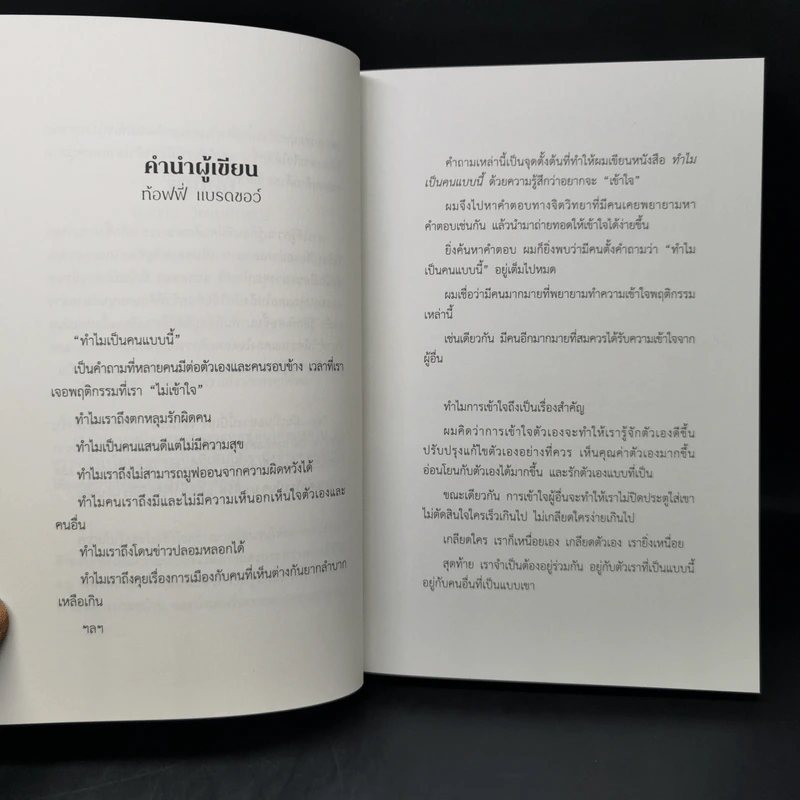 คำนำผู้เขียน
ท้อฟฟี่ แบรดชอว์
“ทำไมเป็นคนแบบนี้”
เป็นคำถามที่หลายคนมีต่อตัวเองและคนรอบข้าง เวลาที่เรา
เจอพฤติกรรมที่เรา “ไม่เข้าใจ”
ทำไมเราถึงตกหลุมรักผิดคน
ทำไมเป็นคนแสนดีแต่ไม่มีความสุข
ทำไมเราถึงไม่สามารถมูฟออนจากความผิดหวังได้
ทำไมคนเราถึงมีและไม่มีความเห็นอกเห็นใจตัวเองและ
คนอื่น
ทำไมเราถึงโดนข่าวปลอมหลอกได้
ทำไมเราถึงคุยเรื่องการเมืองกับคนที่เห็นต่างกันยากลำบาก
เหลือเกิน
ฯลฯ
คำถามเหล่านี้เป็นจุดตั้งต้นที่ทำให้ผมเขียนหนังสือ ทำไม
เป็นคนแบบนี้ ด้วยความรู้สึกว่าอยากจะ “เข้าใจ”
ผมจึงไปหาคำตอบทางจิตวิทยาที่มีคนเคยพยายามหา
คำตอบเช่นกัน แล้วนำมาถ่ายทอดให้เข้าใจได้ง่ายขึ้น
ยิ่งค้นหาคำตอบ ผมก็ยิ่งพบว่ามีคนตั้งคำถามว่า “ทำไม
เป็นคนแบบนี้” อยู่เต็มไปหมด
ผมเชื่อว่ามีคนมากมายที่พยายามทำความเข้าใจพฤติกรรม
เหล่านี้
เช่นเดียวกัน มีคนอีกมากมายที่สมควรได้รับความเข้าใจจาก
ผู้อื่น
ทำไมการเข้าใจถึงเป็นเรื่องสำคัญ
ผมคิดว่าการเข้าใจตัวเองจะทำให้เรารู้จักตัวเองดีขึ้น
ปรับปรุงแก้ไขตัวเองอย่างที่ควร เห็นคุณค่าตัวเองมากขึ้น
อ่อนโยนกับตัวเองได้มากขึ้น และรักตัวเองแบบที่เป็น
ขณะเดียวกัน การเข้าใจผู้อื่นจะทำให้เราไม่ปิดประตูใส่เขา
ไม่ตัดสินใจใครเร็วเกินไป ไม่เกลียดใครง่ายเกินไป
เกลียดใคร เราก็เหนื่อยเอง เกลียดตัวเอง เรายิ่งเหนื่อย
สุดท้าย เราจำเป็นต้องอยู่ร่วมกัน อยู่กับตัวเราที่เป็นแบบนี้
อยู่กับคนอื่นที่เป็นแบบเขา